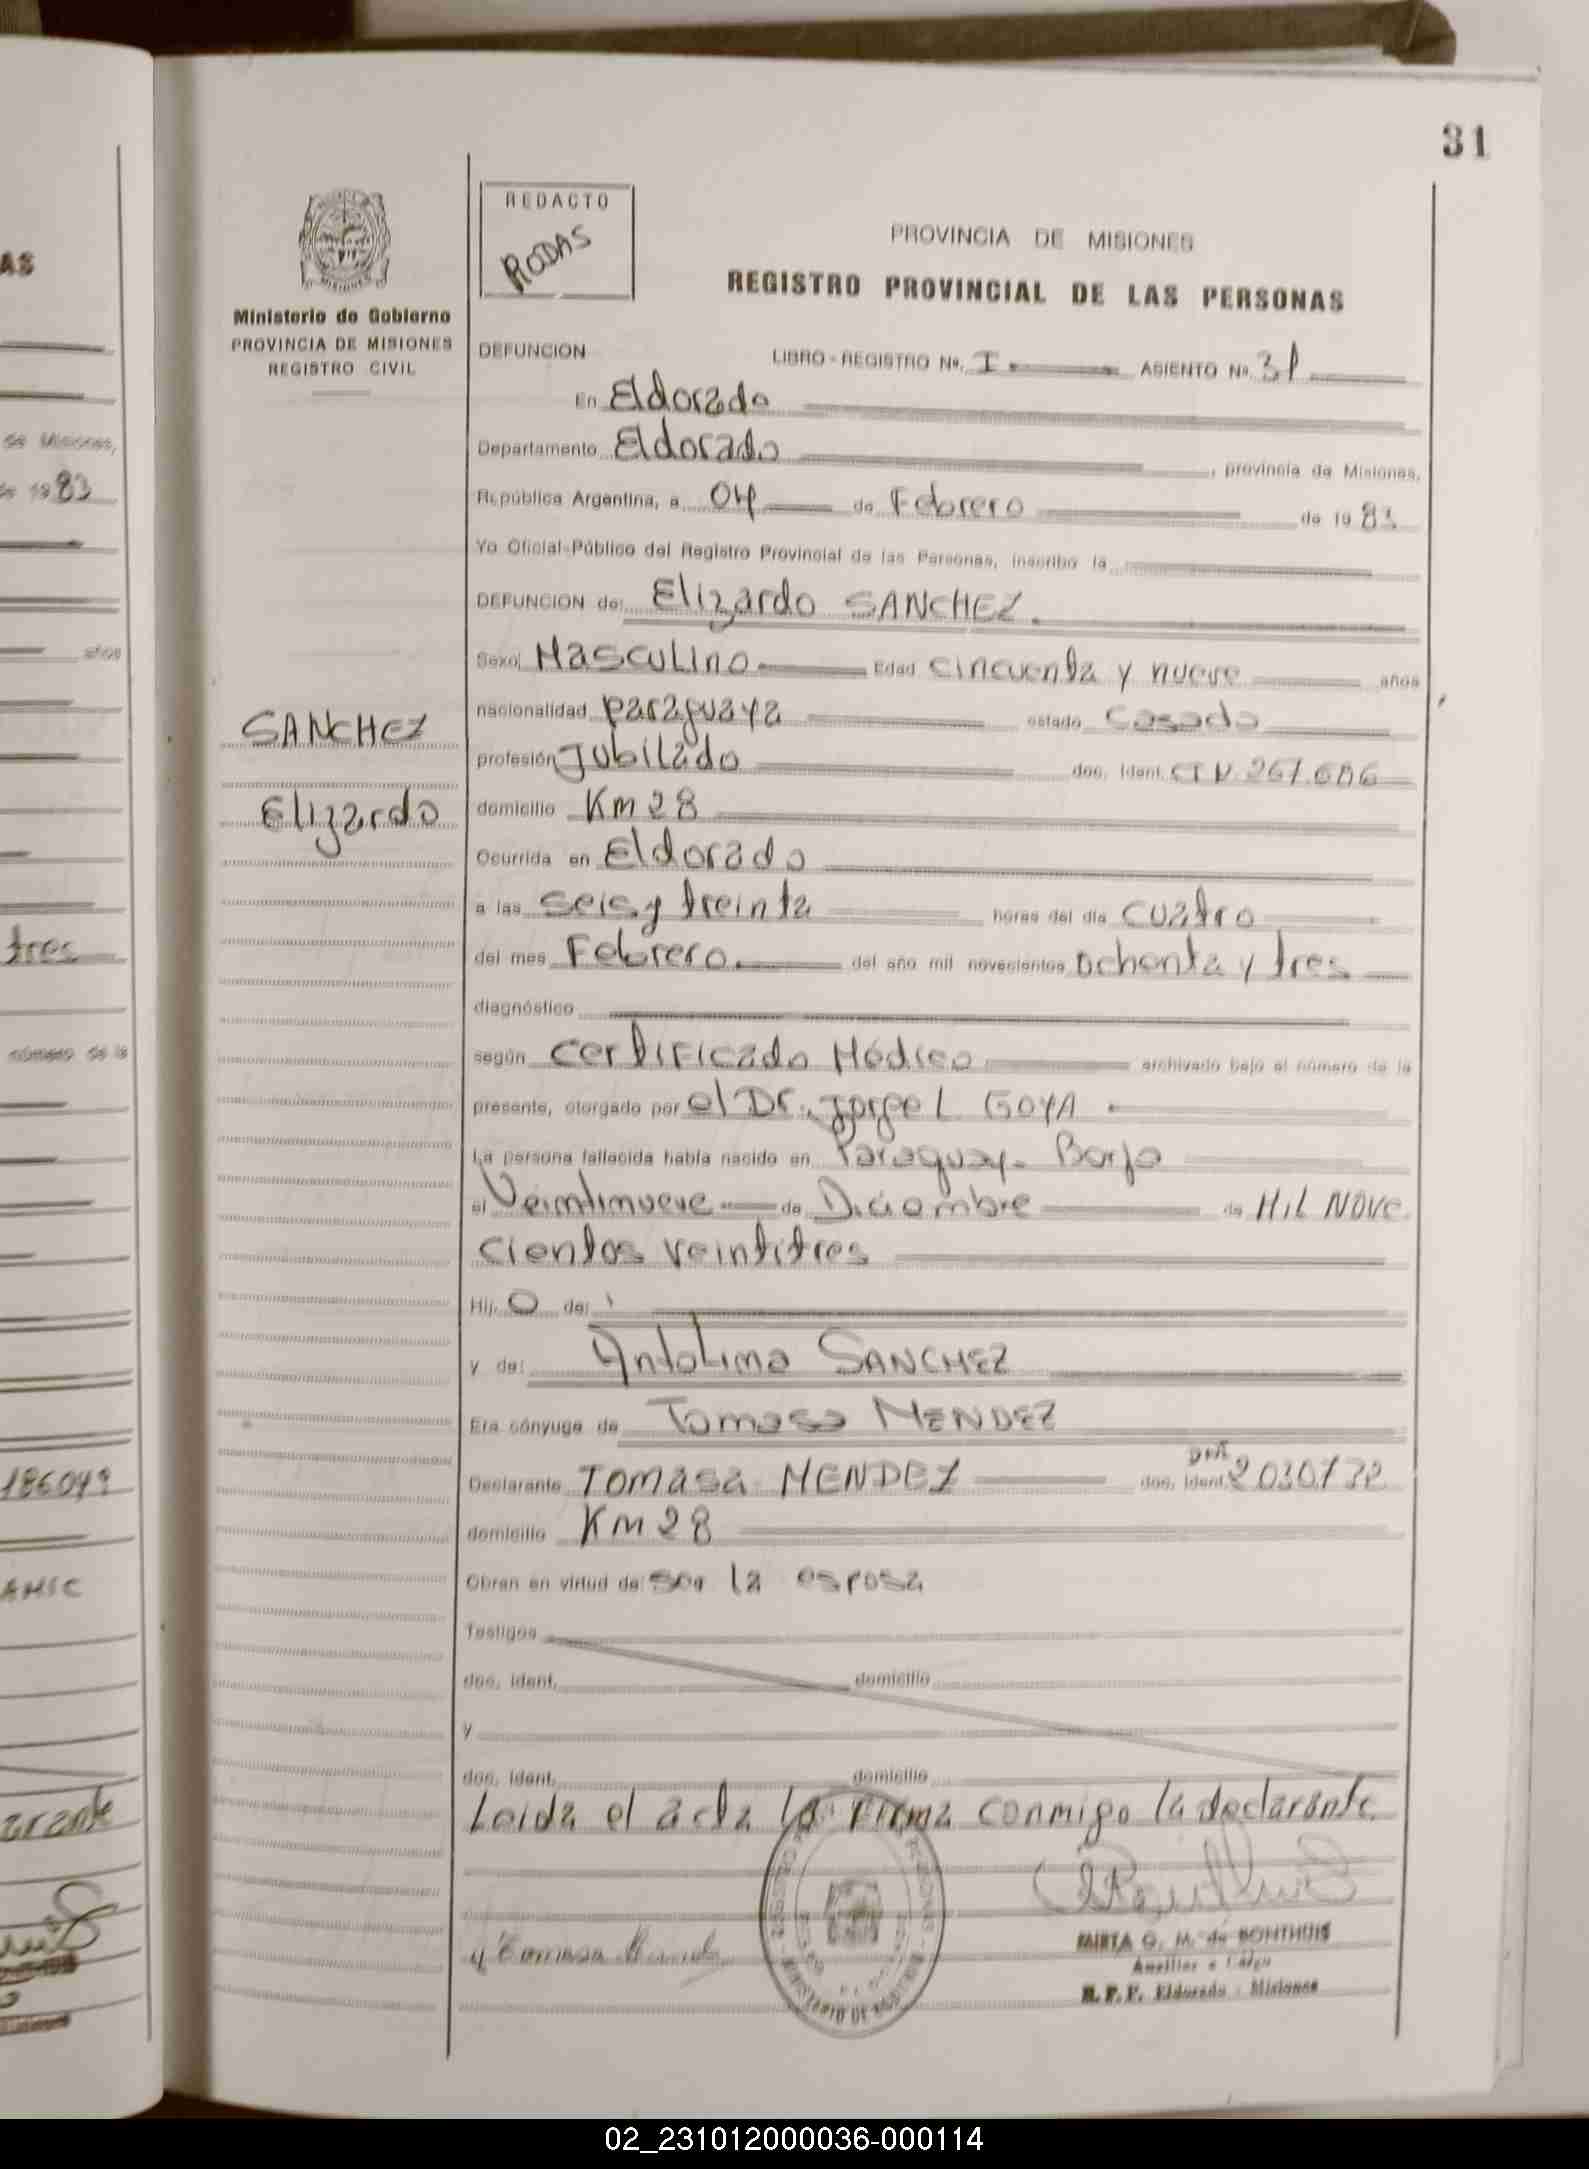 31
REDACTO
RODAS
PROVINCIA DE MISIONES
REGISTRO PROVINCIAL DE LAS PERSONAS
Ministerio de Gobierno
PROVINCIA DE MISIONES
REGISTRO CIVIL
DEFUNCION LIBRO-REGISTRO Nº. I ASIENTO Nº 31
En Eldorado
Departamento Eldorado, provincia de Misiones,
República Argentina, a 04 de Febrero de 1983
Yo Oficial Público del Registro Provincial de las Personas, inscribo la
DEFUNCION de: Elizardo SANCHEZ.
Sexo: Masculino Edad cincuenta y nueve años
nacionalidad paraguaya estado Casado
profesión Jubilado doc. ident. CI N. 267.686
domicilio Km 28
Ocurrida en Eldorado
a las seis y treinta horas del día cuatro
del mes Febrero del año mil novecientos ochenta y tres
diagnóstico
según Certificado Médico archivado bajo el número de la
presente, otorgado por el Dr. Jorge L GOYA
La persona fallecida había nacido en Paraguay. Borja
el Veintinueve de Diciembre de Mil NOVE
cientos veintitres
Hij o de:
y de: Antolina SANCHEZ
Era cónyuge de Tomasa MENDEZ
Declarante TOMASA MENDEZ doc. ident.
domicilio Km 28
Obran en virtud de ser la esposa
Testigos
doc. ident. domicilio
y
doc. ident. domicilio
Leida el acta la firma conmigo la declarante.
Tomasa
MIRTA G. M. de BONTHUIS
Auxiliar a Cargo
R. P. P. Eldorado - Misiones
SANCHEZ
Elizardo
AS
de Misiones,
de 1983
años
tres
número de la
186049
arante
02_231012000036-000114